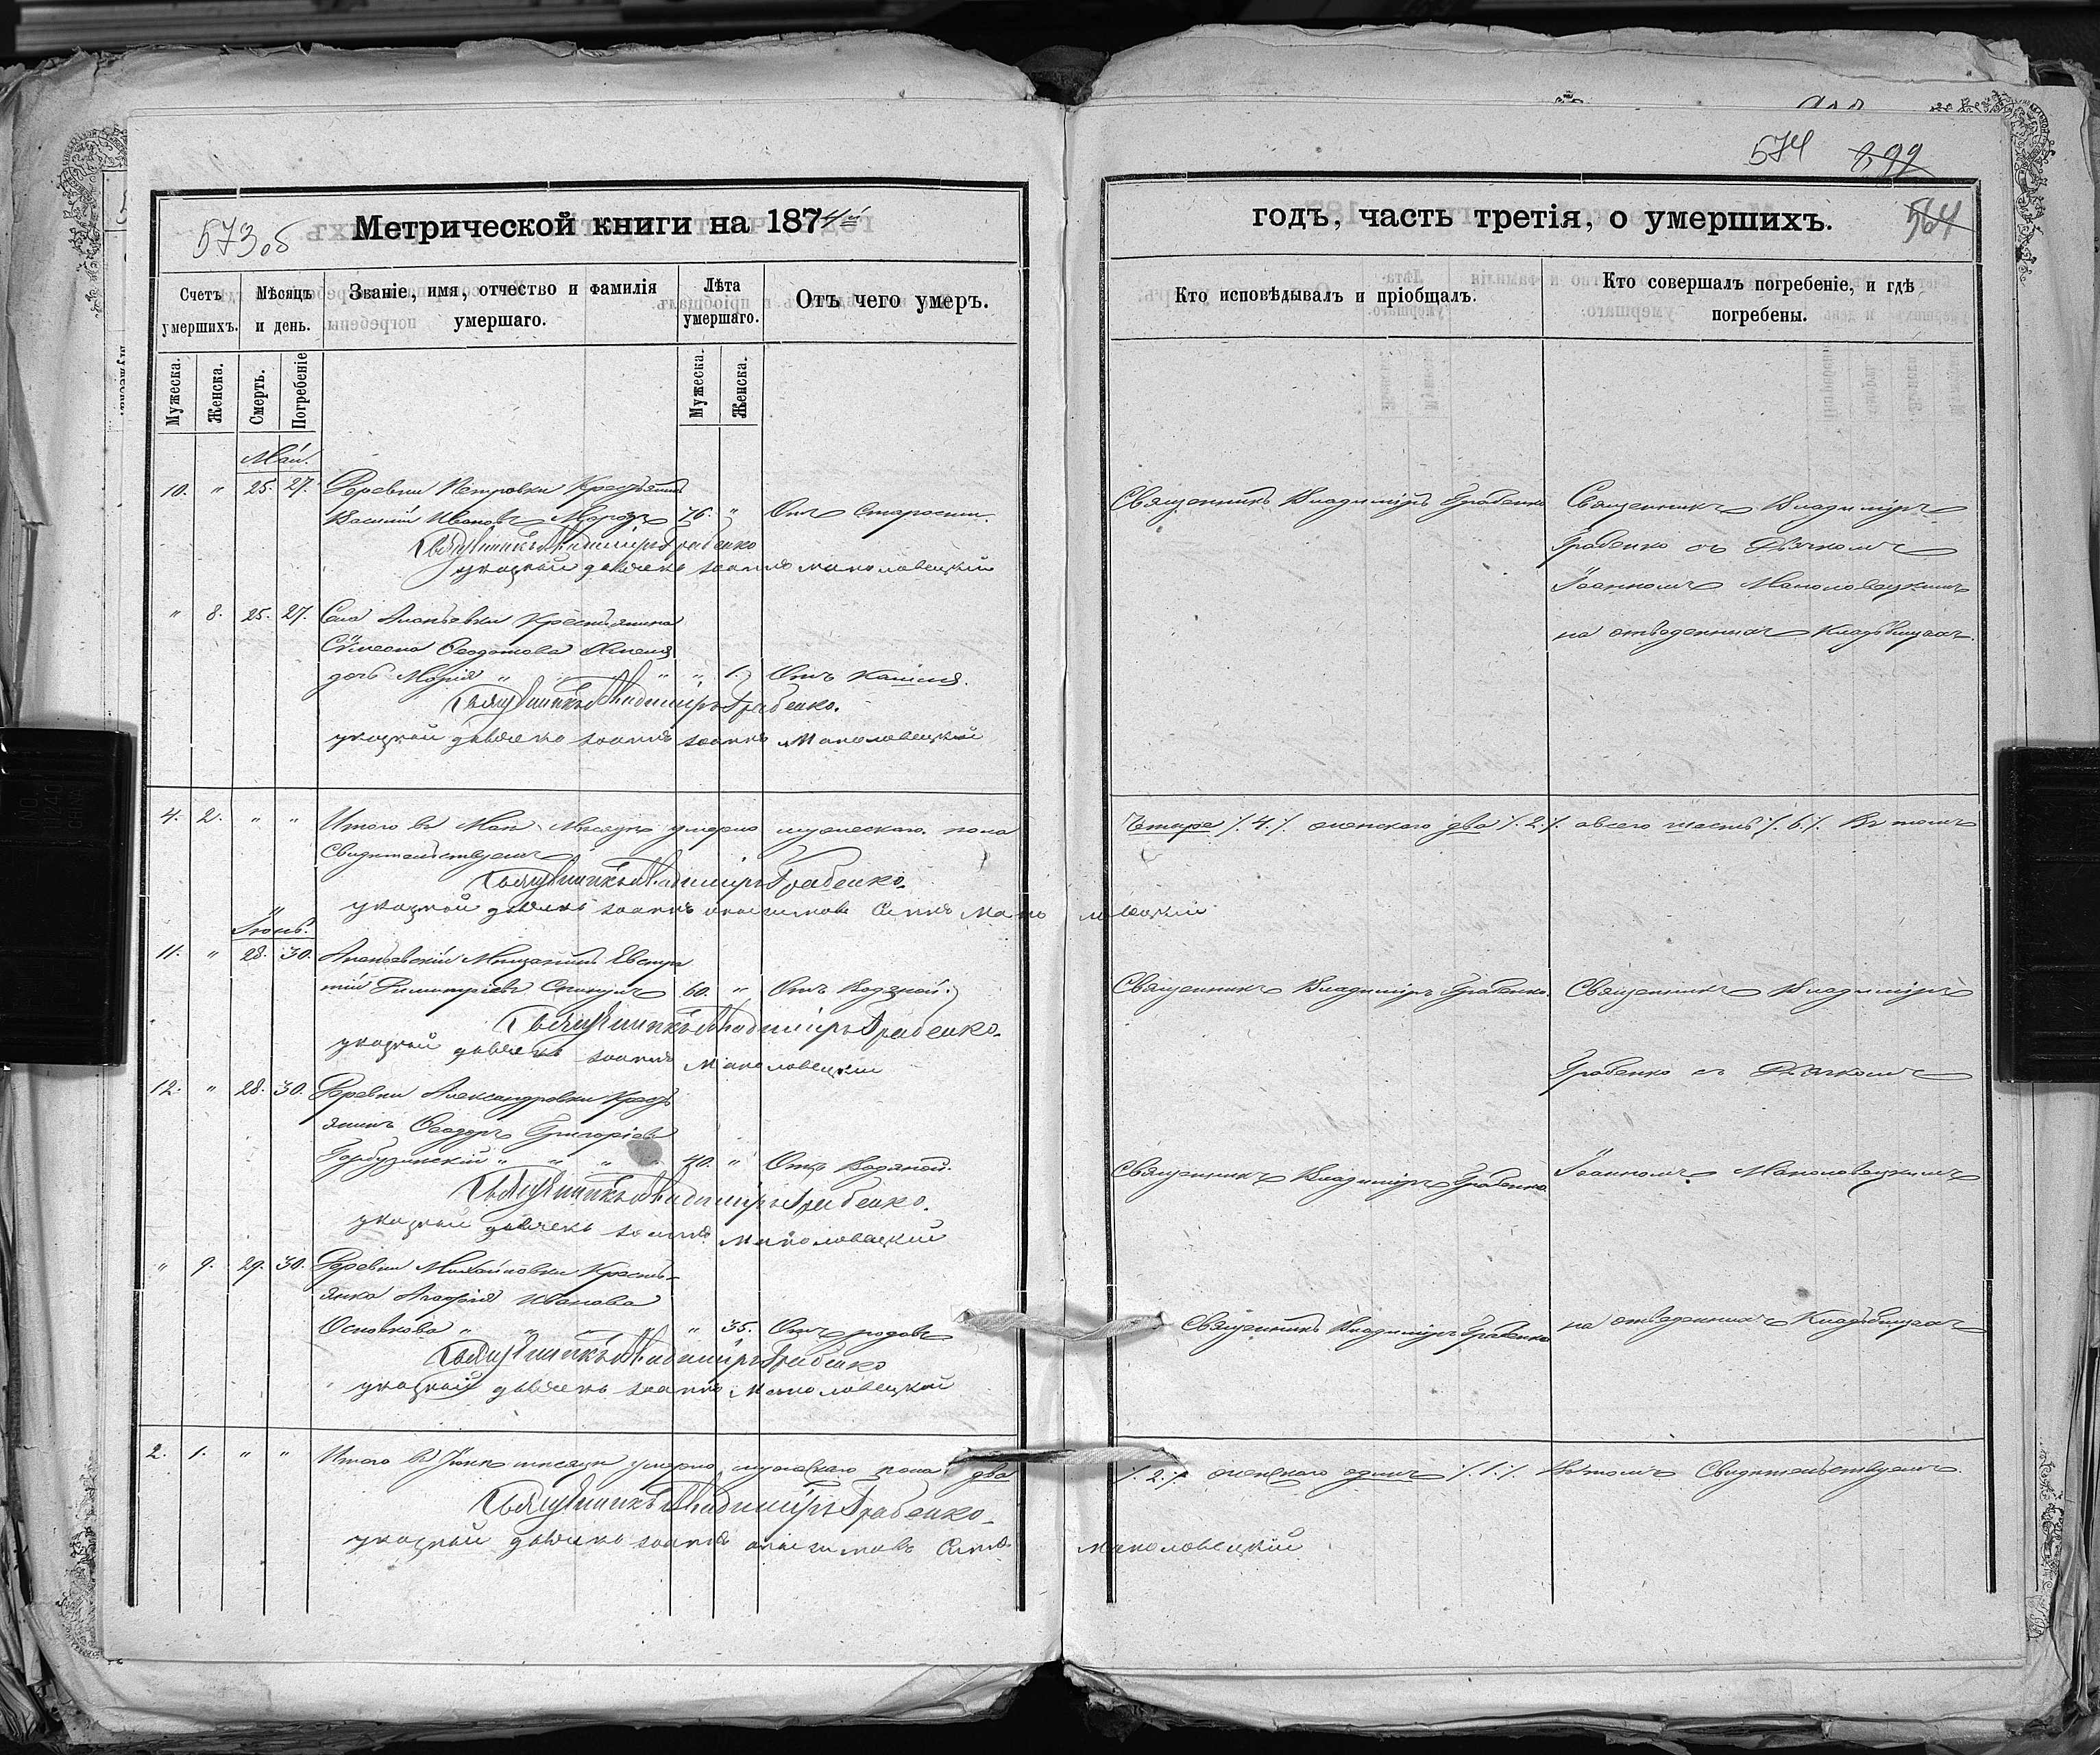 574 899
573об
Метрической книги на 1874й
годъ, часть третія, о умершихъ.
564
Счетъ умершихъ.
Мѣсяцъ и день.
Званіе, имя, отчество и фамилія умершаго.
Лѣта умершаго.
Отъ чего умеръ.
Кто исповѣдывалъ и пріобщалъ.
Кто совершалъ погребеніе, и гдѣ погребены.
Мужеска.
Женска.
Смерть.
Погребеніе
Мужеска.
Женска.
Май.
10. " 25. 27. Деревни Петровки Крестьянинъ
Василій Ивановъ Морозъ 76. " Отъ Старости.
Священникъ Владиміръ Грабенко
указный дьячекъ Іоаннъ Маноловецкій
Священникъ Владиміръ Грабенко
Священникъ Владиміръ
Грабенко съ Дьячкомъ
Іоанномъ Маноловецкимъ
на отведенныхъ Кладбищахъ.
" 8. 25. 27. Села Ананьевки Крестьянина
Сѵмеона Ѳеодотова
дочь Марія " " " 1. Отъ Кашля.
Священникъ Владиміръ Грабенко.
указный дьячекъ Іоаннъ Іоаннъ Маноловецкій
4. 2. " " Итого въ Маѣ Мѣсяцѣ умерло мужескаго пола
Четыре /.4./. женскаго два /.2./. а всего шесть /.6./. Въ томъ
Свидетельствуемъ
Священникъ Владиміръ Грабенко.
указный дьячекъ Іоаннъ Маноловецкій
Іюнь.
11. " 28. 30. Ананьевскій Мещанинъ Евстра
тій Димитріевъ 60. " Отъ Водяной.
Священникъ Владиміръ Грабенко.
указный дьячекъ Іоаннъ Маноловецкій
Священникъ Владиміръ Грабенко.
Священникъ Владиміръ
Грабенко съ Дьячкомъ
12. " 28. 30. Деревни Александровки Кресть
янинъ Ѳеодоръ Григоріевъ
Гарбузинскій " " " " 40. " Отъ Водяной.
Священникъ Владиміръ Грабенко.
указный дьячекъ Іоаннъ Маноловецкій
Священникъ Владиміръ Грабенко
Іоанномъ Маноловецкимъ
" 9. 29. 30. Деревни Михайловки Кресть-
янка Агафія Иванова
" " " " 35. Отъ родовъ
Священникъ Владиміръ Грабенко
указный дьячекъ Іоаннъ Маноловецкій
Священникъ Владиміръ Грабенко
на отведенныхъ Кладбищахъ
2. 1. " " Итого въ Іюнѣ мѣсяцѣ умерло мужескаго пола два
/.2./. женскаго одинъ /.1./. Въ томъ Свидетельствуемъ
Священникъ Владиміръ Грабенко.
указный дьячекъ Іоаннъ
Маноловецкій